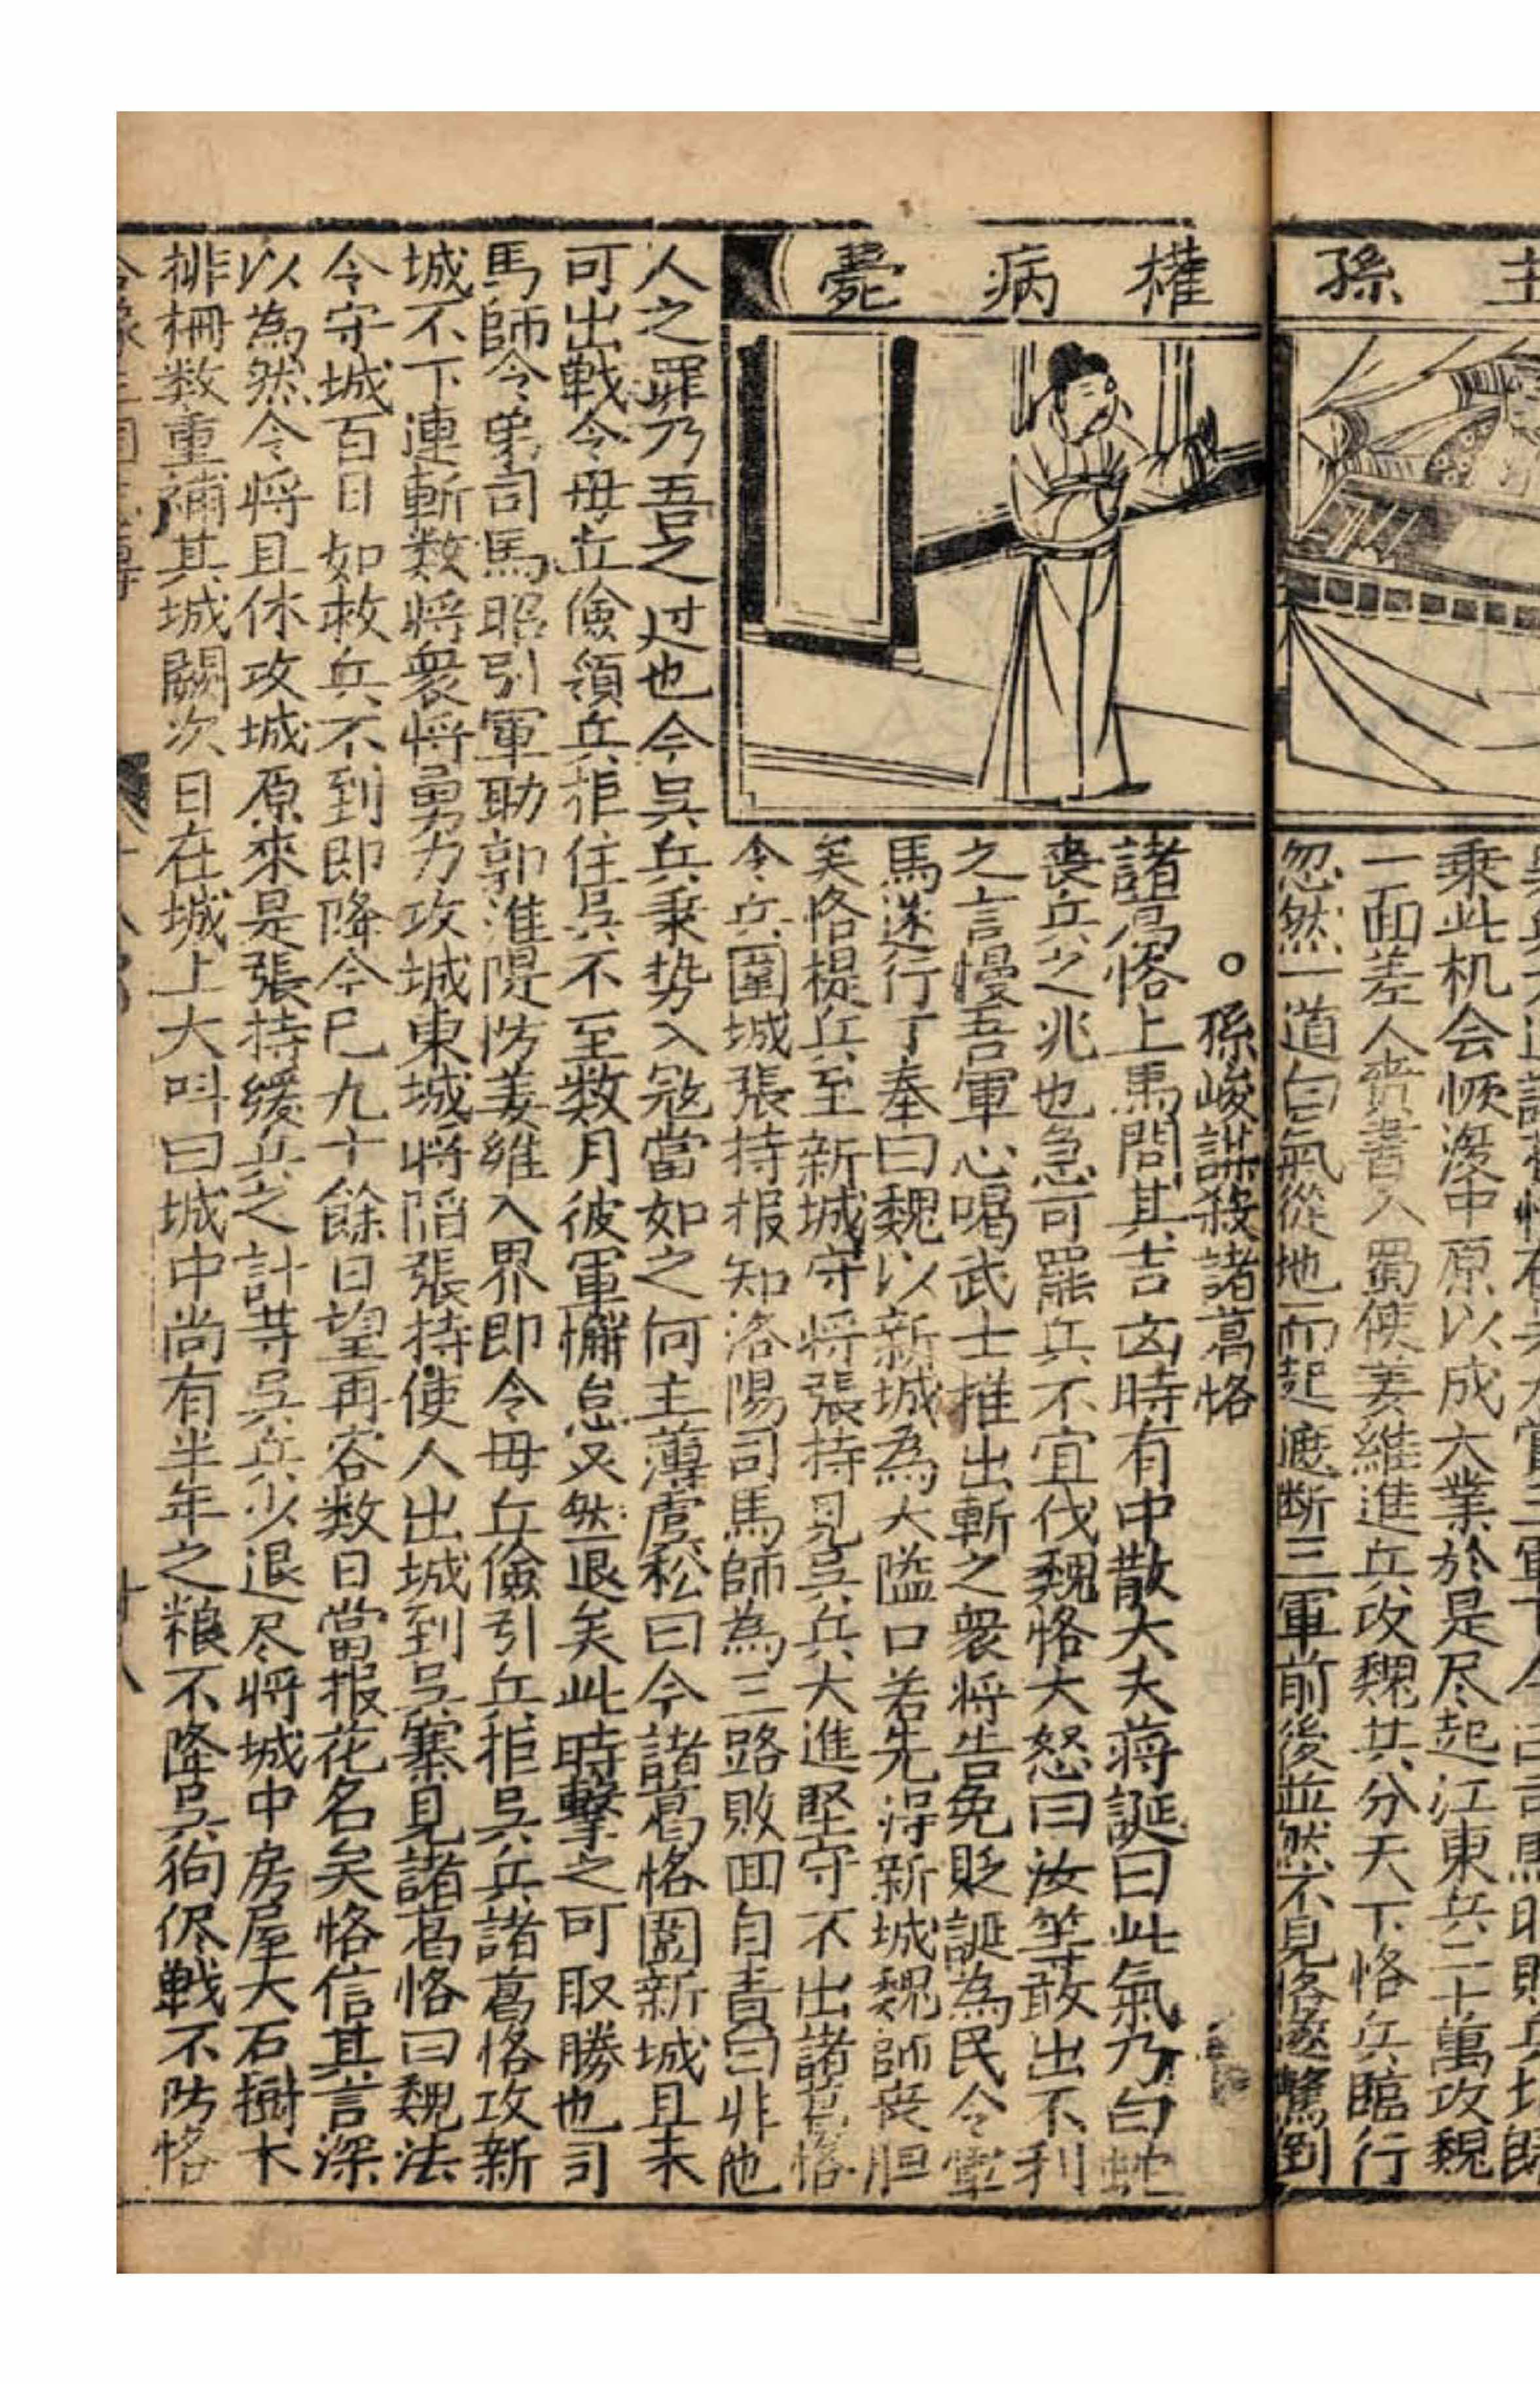 主孫
權病薨
乘此机会恢復中原以成大業於是尽起江東兵二十萬攻魏
一面差人賫書入蜀使姜維進兵攻魏共分天下恪兵臨行
忽然一道白氣從地而起遮断三軍前後並然不見恪遂驚倒
○孫峻謀殺諸葛恪
諸葛恪上馬問其吉凶時有中散大夫蔣誕曰此氣乃白蛇
喪兵之兆也急可罷兵不宜伐魏恪大怒曰汝等敢出不利
之言慢吾軍心喝武士推出斬之衆将告免貶誕為民令軍
馬遂行丁奉曰魏以新城為大隘口若先淂新城魏師丧胆
矣恪提兵至新城守将張持見吳兵大進堅守不出諸葛恪
令兵圍城張持报知洛陽司馬師為三路敗囬自責曰非他
人之罪乃吾之过也今吳兵乗势入宼當如之何主薄虞松曰今諸葛恪圍新城且未
可出戰令毋丘儉領兵拒住吳兵不至数月彼軍懈怠必然退矣此時擊之可取勝也司
馬師令弟司馬昭引軍助郭淮隄防姜維入界即令毋丘儉引兵拒吳兵諸葛恪攻新
城不下連斬数将衆将勇力攻城東城将陷張持使人出城到吳寨見諸葛恪曰魏法
令守城百日如救兵不到即降今已九十餘日望再容数日當报花名矣恪信其言深
以為然令将且休攻城原來是張持緩兵之計等吳兵少退尽将城中房屋大石樹木
排柵数重補其城闕次日在城上大呌曰城中尚有半年之粮不降吳狗侭戰不防恪